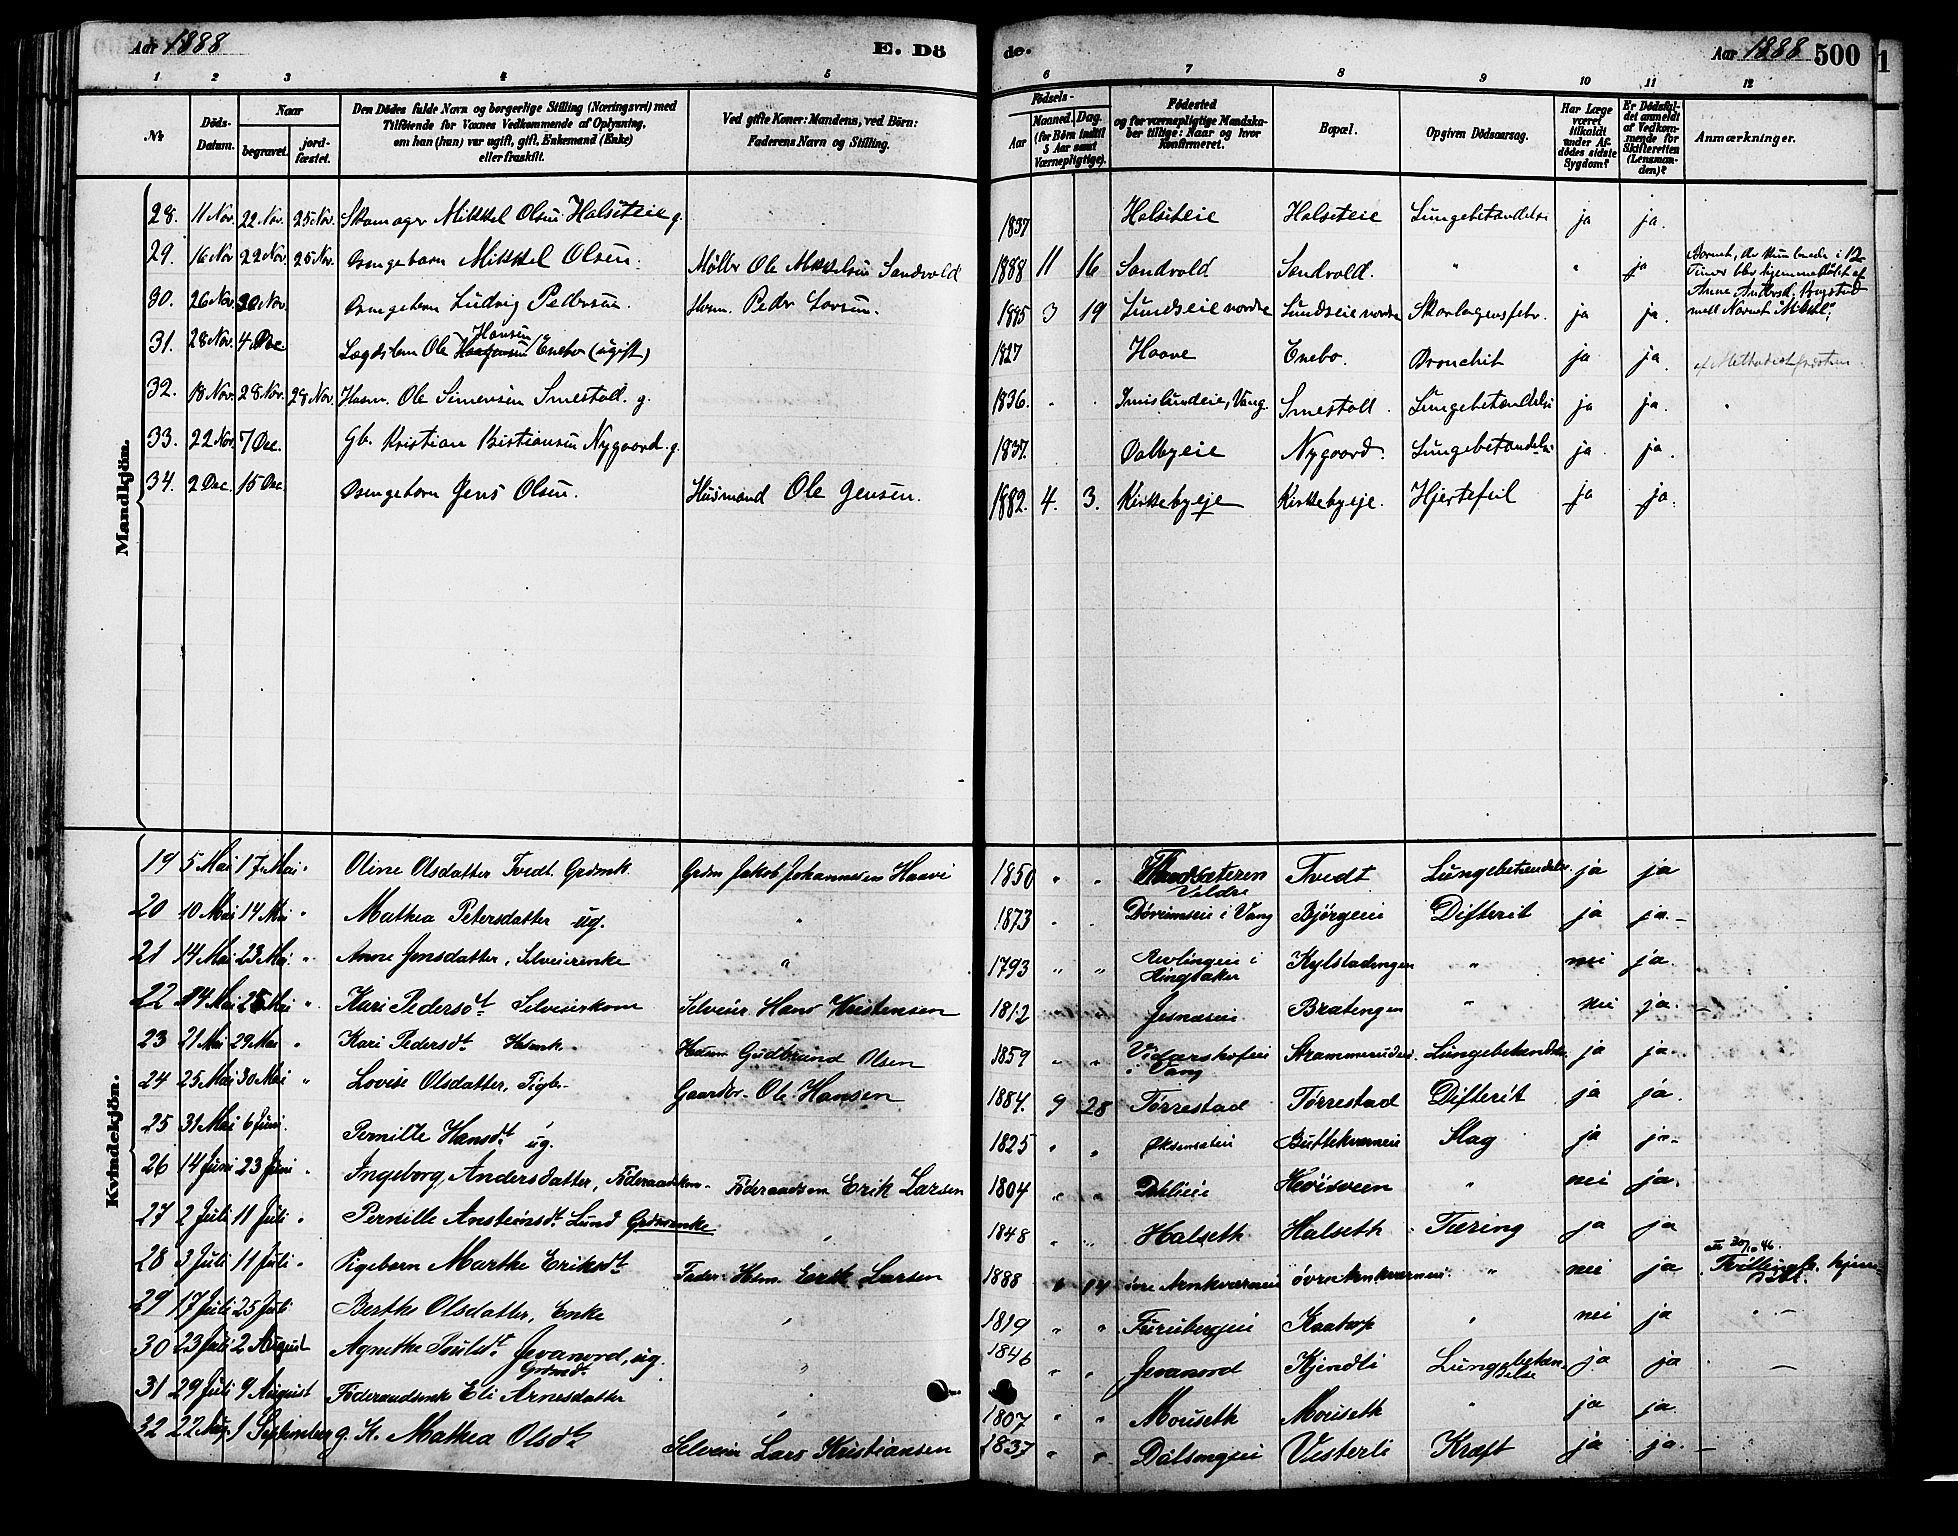 Aar 1888 E. Dö
de. Aar 1888 500
1 2 3 4 5 6 7 8 9 10 11 12
No. Döds-Datum. Naar begravet. jordfæstet. Den Dödes fulde Navn og borgerlige Stilling (Næringsvei) med Tilföiende for Voxnes Vedkommende af Oplysning, om han (hun) var ugift, gift, Enkemand (Enke) eller fraskilt. Ved gifte Koner: Mandens, ved Börn: Faderens Navn og Stilling. Födsels- Aar Maaned. Dag. (for Börn indtil 5 Aar samt Værnepligtige). Födested og for værnepligtige Mandskaber tillige: Naar og hvor Konfirmeret. Bopæl. Opgiven Dödsaarsag. Har Læge været tilkaldt under Afdödes sidste Sygdom? Er Dödsfaldet anmeldt af Vedkommende for Skifteretten (Lensmanden)? Anmærkninger.
Mandkjön.
28. 11 Nov. 22 Nov. 25 Nov. Skomager Mikkel Olsen Halseteie g. 1837 Halseteie Halseteie Lungebetændelse ja ja.
29. 16 Nov 22 Nov. 25 Nov. Drengebarn Mikkel Olsen. Møller Ole Mikkelsen Sandvold 1888 11 16 Sandvold Sandvold. " " ja Barnet, der kun levede i 12 Timer blev hjemmedøbt af Anne
30. 26 Nov Drengebarn Ludvig Pedersen. Husm. Peder Larsen. 3 19 Lundseie nordre Lundseie nordre Skarlagensfeber. ja ja. med Navnet "Mikkel".
31. 28 Nov. 4 Dec. Lægdslem Ole Hansen Enebo (ugift) 1827 Haave Enebo. Bronchit ja ja. af Methodistpræsten
32. 18 Nov. 28 Nov. 28 Nov. Husm. Ole Simensen Smestad. g. 1836. Imislundeie, Vang. Smestad. Lungebetændelse ja ja.
33. 22 Nov. 7 Dec. Gb. Kristian Kristiansen Nygaard. g. 1837. Dalbyeie Nygaard. Lungebetændelse ja. ja.
34. 2 Dec. 15 Dec Drengebarn Jens Olsen. Husmand Ole Jensen. 1882. 4. 3. Kirkebyeje Kirkebyeje. Hjertefeil ja ja.
Kvindekjön.
19 5 Mai 17 Mai " Oline Olsdatter Tvedt. Grdmk. Grdm Jakob Johannesen Haave 1850 " " Veldre Tvedt. Lungebetændelse ja ja
20 10 Mai 14 Mai " Mathea Petersdatter ug. " 1873 i Vang Bjørgeie Difterit ja ja.
21 14 Mai 23 Mai. " Anne Jensdatter, Selveierenke " 1793 " " i Ringsaker Kylstadengen " nei ja.
22 14 Mai 25 Mai " Kari Pedersdt. Selveierkone Selveier Hans Kristensen 1812 Jesnæseie Bratengen " nei ja.
23 21 Mai 29 Mai " Kari Pedersdt. Husmk. Husm Gudbrand Olsen 1859 " " Vidarshofeie i Vang Strammerudei. Lungebetændelse ja ja
24 25 Mai 30 Mai " Lovise Olsdatter, Pigb. Gaardbr. Ole Hansen 1884. 9 28 Tørrestad Tørrestad Difterit ja ja.
25 31 Mai 6 Juni. Pernille Hansdt. ug. 1825 " " Buttekværneie Slag ja ja
26 14 Juni 23 Juni " Ingeborg Andersdatter, Föderaadskone Föderaadsm Erik Larsen 1804 " " Dahlieie " nei ja.
27 2 Juli 11 Juli " Pernille Anstensdt. Lund Grdmenke " 1848 " " Halseth Halseth Tæring ja ja
28 3 Juli 11 Juli " Pigebarn Marthe Eriksdt. Fader Husm. Erik Larsen 1888 6 14 övre Arnkværneie övre Arnkværneie. " nei ja Tvilling
29 17 Juli 25 Juli Berthe Olsdatter, Enke " 1819 " " Furubergeie Kaatorp " nei ja
30 23 Juli 2 August Agnethe Poulsdt. Jevanord, ug. Grdmdt. " 1846 " " Jevanord Kjendli Lungebetændelse ja ja
31 29 Juli 9 August Föderaadsenke Eli Arnesdatter " 1807 " " Mouseth Mouseth " ja ja.
32 22 Aug. 1 September g. K. Mathea Olsdt. Selveier Lars Kristiansen 1837 " " Dalsengeie Vesterli Kræft ja ja.